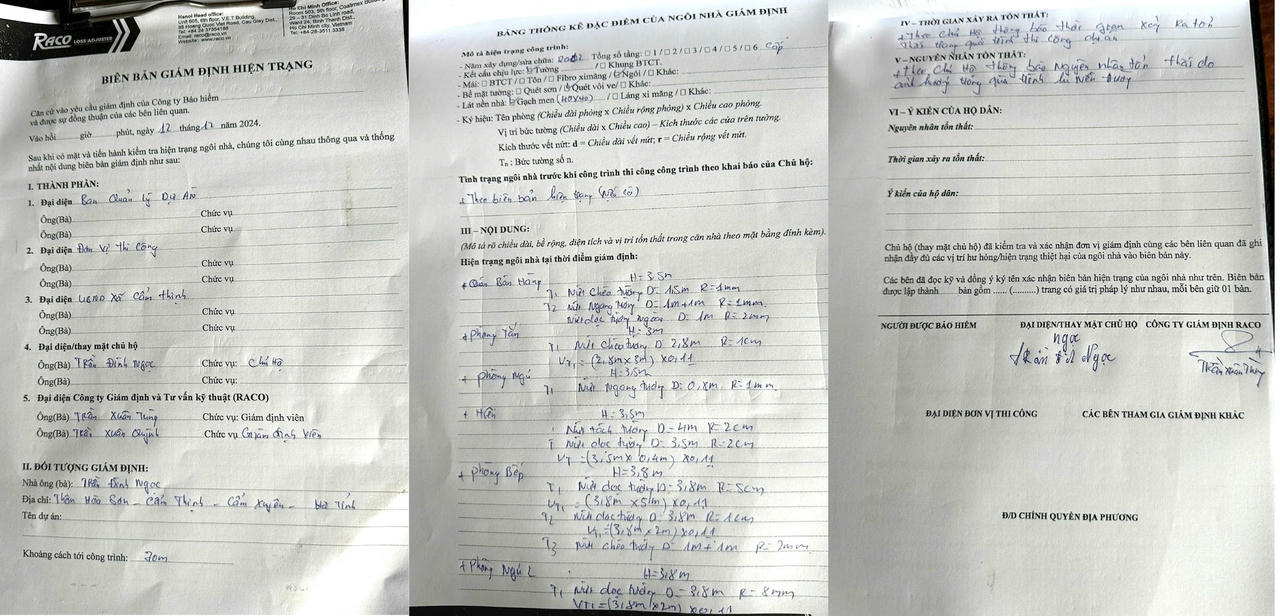 RACO LOSS ADJUSTER
Hanoi Head office:
Unit 605, 6th floor, V.E.T Building,
98 Hoang Quoc Viet Road, Cau Giay Dist.,
Tel: +84 24 37954195
Email: raco@raco.vn
Website: www.raco.vn
Ho Chi Minh City Office:
Room 503, 5th floor, Coalimex Building
29 – 31 Dinh Bo Linh road,
Ward 24, Binh Thanh Dist.,
Ho Chi Minh City, Vietnam
Tel: +84-28-3511 3338
BIÊN BẢN GIÁM ĐỊNH HIỆN TRẠNG
Căn cứ vào yêu cầu giám định của Công ty Bảo hiểm
và được sự đồng thuận của các bên liên quan.
Vào hồi giờ phút, ngày 12 tháng 12 năm 2024.
Sau khi có mặt và tiến hành kiểm tra hiện trạng ngôi nhà, chúng tôi cùng nhau thông qua và thống
nhất nội dung biên bản giám định như sau:
I. THÀNH PHẦN:
1. Đại diện Ban Quản Lý Dự Án
Ông(Bà) Chức vụ
Ông(Bà) Chức vụ
2. Đại diện Đơn Vị Thi Công
Ông(Bà) Chức vụ
Ông(Bà) Chức vụ
3. Đại diện UBND Xã Cẩm Thịnh
Ông(Bà) Chức vụ
Ông(Bà) Chức vụ
4. Đại diện/thay mặt chủ hộ
Ông(Bà) Trần Đình Ngọc Chức vụ: Chủ Hộ
Ông(Bà) Chức vụ:
5. Đại diện Công ty Giám định và Tư vấn kỹ thuật (RACO)
Ông(Bà) Trần Xuân Tùng Chức vụ: Giám định viên
Ông(Bà) Trần Xuân Quỳnh Chức vụ Giám định Viên
II. ĐỐI TƯỢNG GIÁM ĐỊNH:
Nhà ông (bà): Trần Đình Ngọc
Địa chỉ: Thôn Hòa Sơn - Cẩm Thịnh - Cẩm Xuyên - Hà Tĩnh
Tên dự án:
Khoảng cách tới công trình: 70m
BẢNG THỐNG KÊ ĐẶC ĐIỂM CỦA NGÔI NHÀ GIÁM ĐỊNH
Mô tả hiện trạng công trình:
- Năm xây dựng/sửa chữa: 2002 Tổng số tầng: □ 1 / □ 2 / □ 3 / □ 4 / □ 5 / □ 6 Cấp
- Kết cấu chịu lực: ☑ Tường / □ Khung BTCT.
- Mái: □ BTCT / □ Tôn / □ Fibro ximăng / ☑ Ngói / □ Khác:
- Bề mặt tường: □ Quét sơn / ☑ Quét vôi ve/ □ Khác:
- Lát nền nhà: ☑ Gạch men (40x40) / □ Láng xi măng / □ Khác:
- Ký hiệu: Tên phòng (Chiều dài phòng x Chiều rộng phòng) x Chiều cao phòng.
Vị trí bức tường (Chiều dài x Chiều cao) – Kích thước các cửa trên tường.
Kích thước vết nứt: d = Chiều dài vết nứt; r = Chiều rộng vết nứt.
Tn : Bức tường số n.
Tình trạng ngôi nhà trước khi công trình thi công công trình theo khai báo của Chủ hộ:
+ Theo biên bản hiện trạng (nếu có)
III – NỘI DUNG:
(Mô tả rõ chiều dài, bề rộng, diện tích và vị trí tổn thất trong căn nhà theo mặt bằng đính kèm).
Hiện trạng ngôi nhà tại thời điểm giám định:
+ Quán Bán Hàng H = 3,5m
T1 Nứt chéo tường D= 1,5m R= 1mm
T2 Nứt Ngang tường D= 1m+1m R= 1mm.
Nứt dọc tường ngoài D= 1m R= 2mm
+ Phòng Tắm H= 3m
T1 Nứt chéo tường D= 2,8m R= 1cm
VT1 = (2,8m x 3m) x 0,11
+ Phòng Ngủ H= 3,5m
T1 Nứt Ngang tường D= 0,8m R= 1mm
+ Hiên H= 3,5m
Nứt tách tường D= 4m R= 2cm
T Nứt dọc tường D= 3,5m R= 2cm
VT = (3,5m x 0,4m) x 0,11
+ Phòng Bếp H= 3,8m
T1 Nứt dọc tường D= 3,8m R= 5cm
VT1 = (3,8m x 5m) x 0,11
T2 Nứt dọc tường D= 3,8m R= 1cm
VT = (3,8m x 2m) x 0,11
T3 Nứt chéo tường D= 1m + 1m R= 2mm
+ Phòng Ngủ 2 H= 3,8m
T1 Nứt dọc tường D= 3,8m R= 8mm
VT1 = (3,8m x 2m) x 0,11
IV – THỜI GIAN XẢY RA TỔN THẤT:
+ Theo Chủ Hộ thông báo thời gian xảy ra tổn
thất trong quá trình thi công dự án
V – NGUYÊN NHÂN TỔN THẤT:
+ Theo Chủ Hộ thông báo Nguyên nhân tổn thất do
ảnh hưởng trong quá trình lu nền đường
VI – Ý KIẾN CỦA HỘ DÂN:
Nguyên nhân tổn thất:
Thời gian xảy ra tổn thất:
Ý kiến của hộ dân:
Chủ hộ (thay mặt chủ hộ) đã kiểm tra và xác nhận đơn vị giám định cùng các bên liên quan đã ghi
nhận đầy đủ các vị trí hư hỏng/hiện trạng thiệt hại của ngôi nhà vào biên bản này.
Các bên đã đọc kỹ và đồng ý ký tên xác nhận biên bản hiện trạng của ngôi nhà như trên. Biên bản
được lập thành bản gồm ...... (..........) trang có giá trị pháp lý như nhau, mỗi bên giữ 01 bản.
NGƯỜI ĐƯỢC BẢO HIỂM ĐẠI DIỆN/THAY MẶT CHỦ HỘ CÔNG TY GIÁM ĐỊNH RACO
ngọc
Trần Đình Ngọc
Trần Xuân Tùng
ĐẠI DIỆN ĐƠN VỊ THI CÔNG CÁC BÊN THAM GIA GIÁM ĐỊNH KHÁC
Đ/D CHÍNH QUYỀN ĐỊA PHƯƠNG